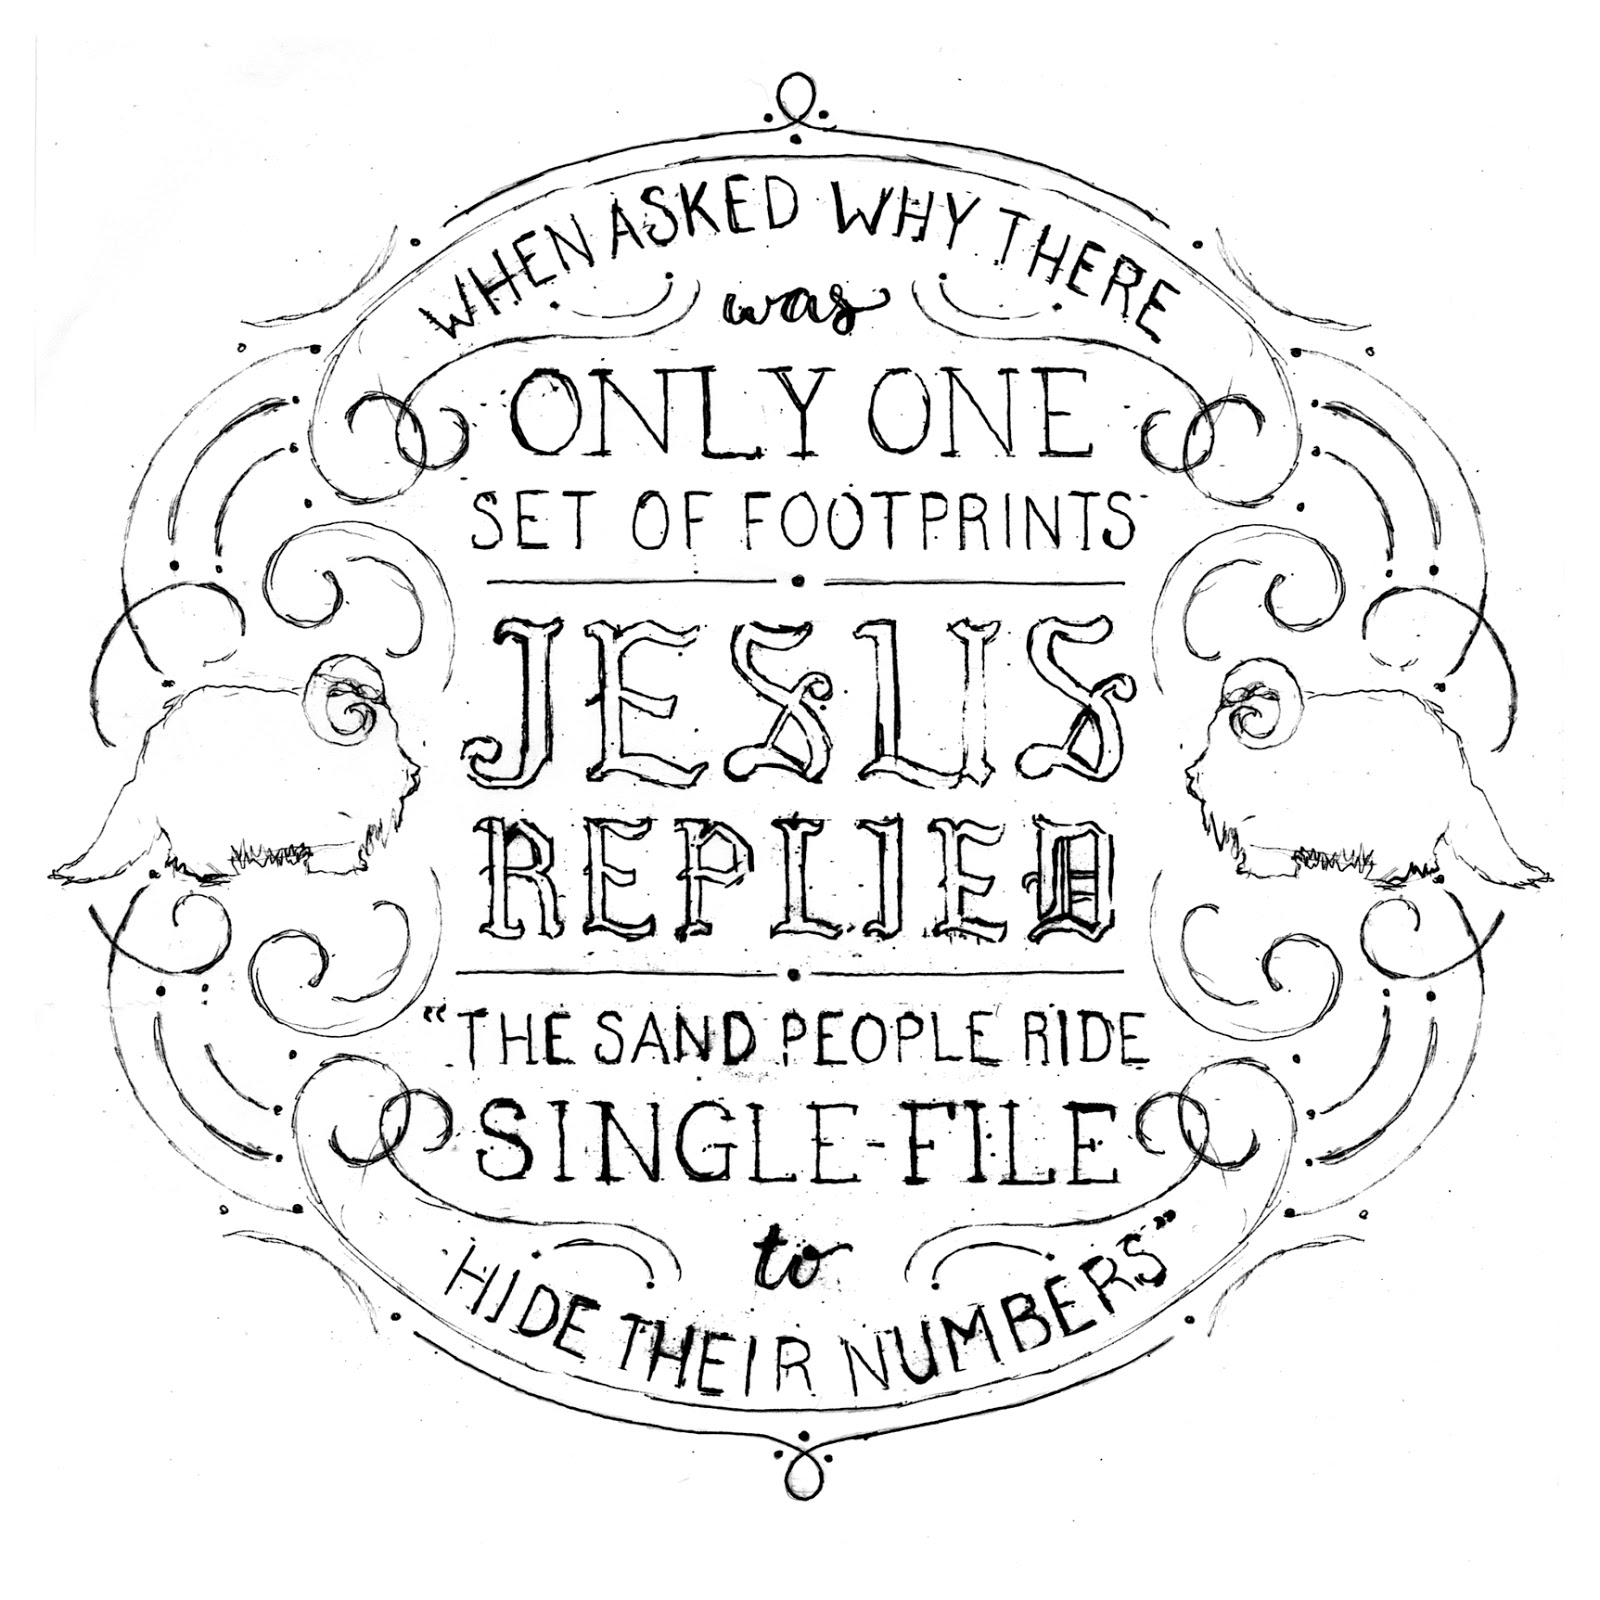 WHEN ASKED WHY THERE
was
ONLY ONE
SET OF FOOTPRINTS
JESUS
REPLIED
"THE SAND PEOPLE RIDE
SINGLE-FILE
to
HIDE THEIR NUMBERS"